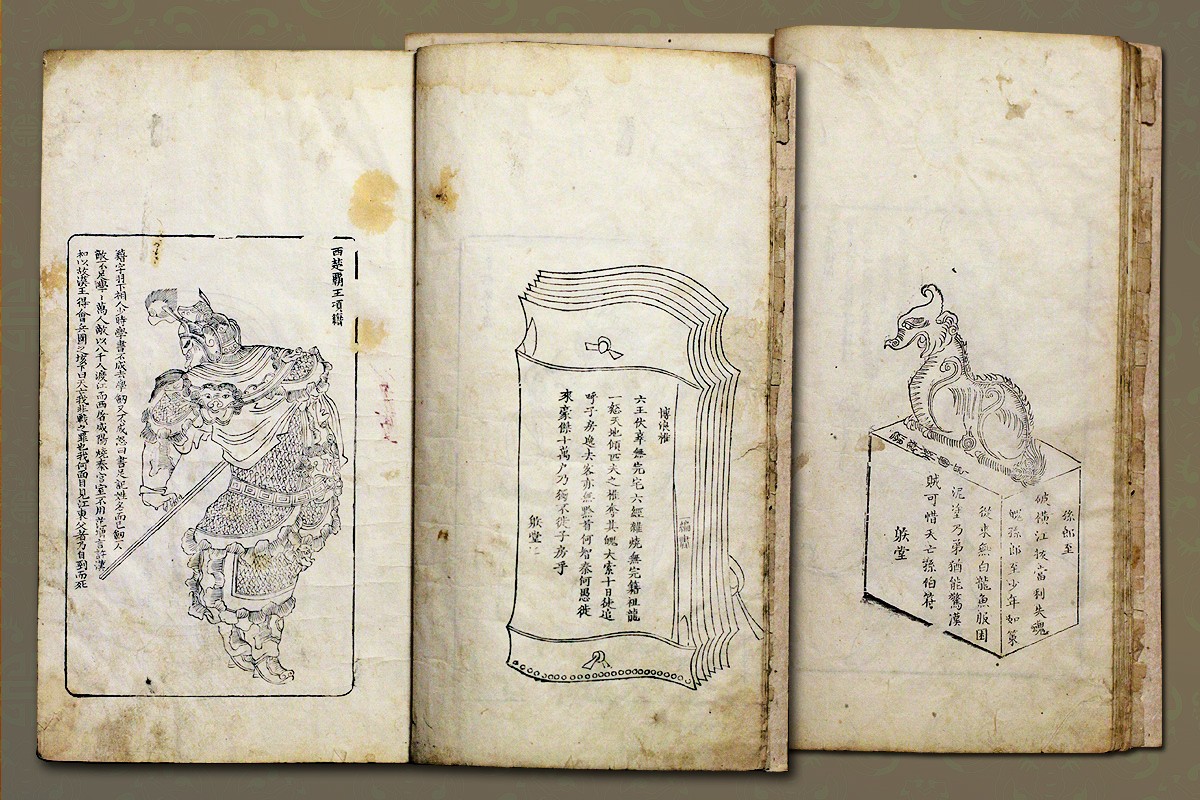 西楚覇王項籍
籍字羽下相人少時學書不成去學劒又不成怒曰書足記姓名而已劒一人
敵不足學〻萬人敵以八千人渡江而西屠咸陽燒秦宮室不用范增言許漢
和以故漢王得會兵圍之垓下曰天亡我非戰之罪也我何面目見江東父老乃自刎而死
博浪椎
六王伏莽無完宅六經纔燒無完籍祖龍
一怒天地傾匹夫之椎奪其魄大索十日徒追
呼子房逸去客亦無黔首何智秦何愚徙
來豪傑十萬户乃獨不徙子房乎
躲堂
孫郎至
破橫江拔當利失魂
魄孫郎至少年如策
從來無白龍魚服困
泥塗乃弟猶能驚漢
賊可惜天亡孫伯符
躲堂